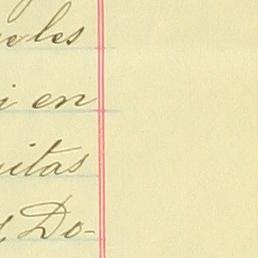 les
i en
itas
y Do-